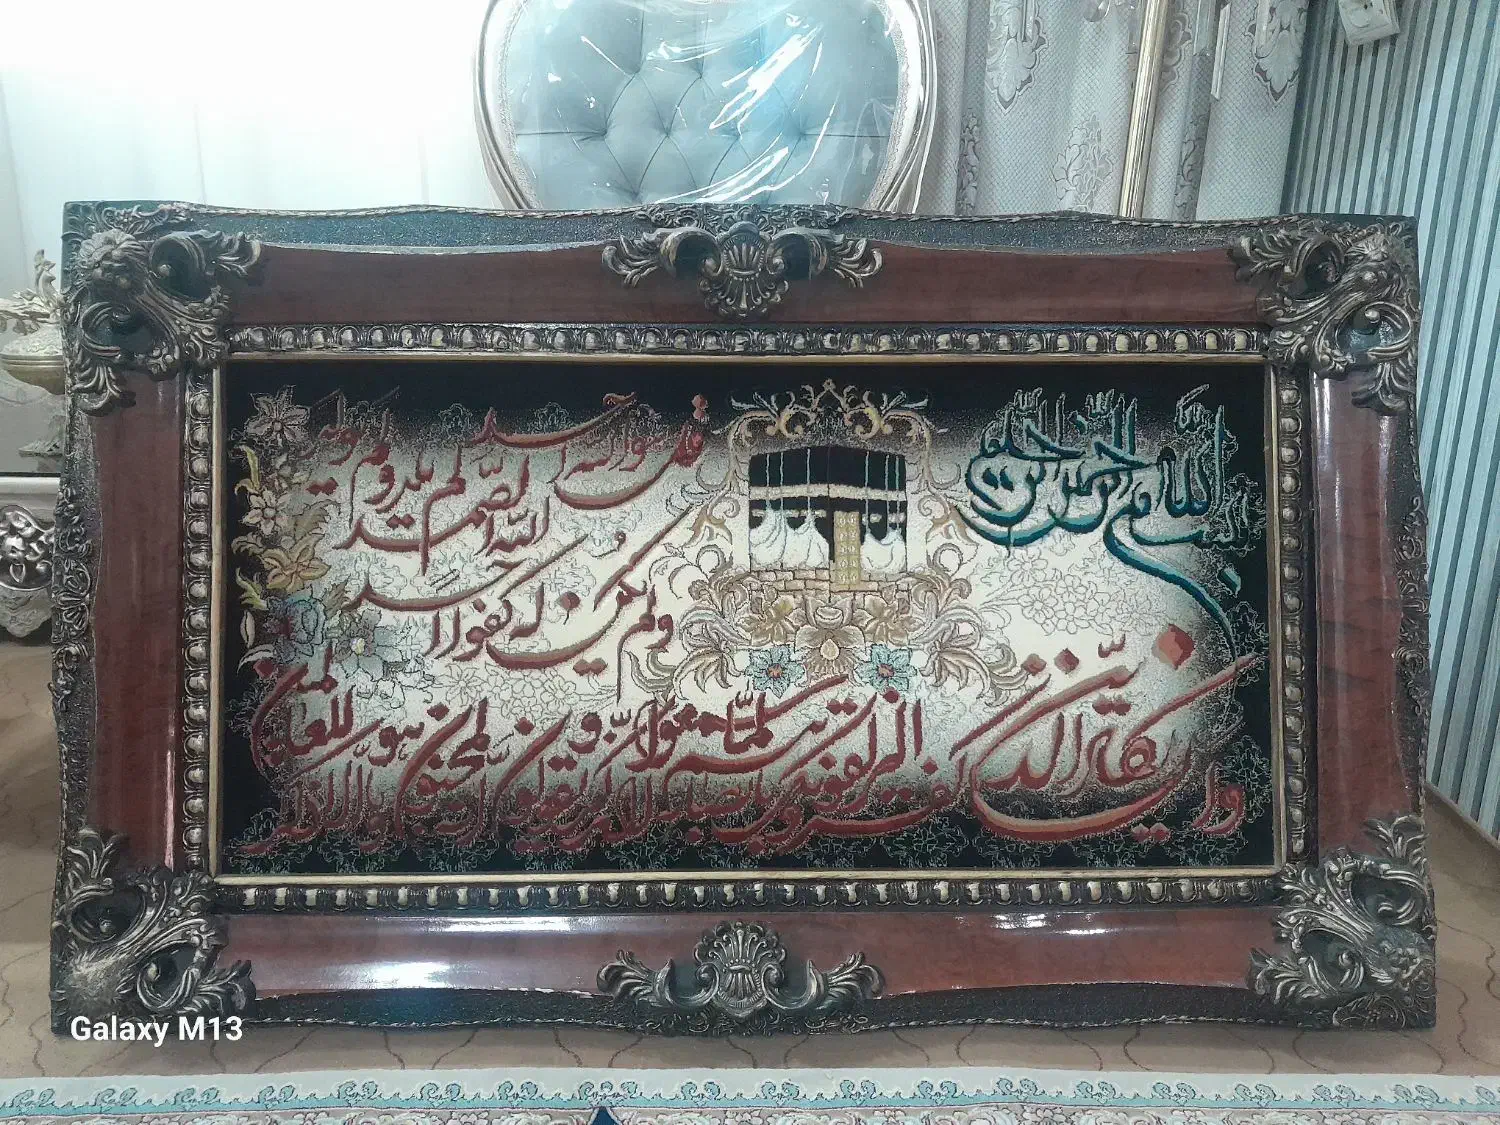 بسم الله الرحمن الرحیم
قل هو الله احد
الله الصمد لم یلد ولم یولد
ولم یکن له کفوا احد
وان یکاد الذین کفروا لیزلقونک بابصارهم لما سمعوا الذکر ویقولون انه لمجنون وما هو الا ذکر للعالمین
Galaxy M13